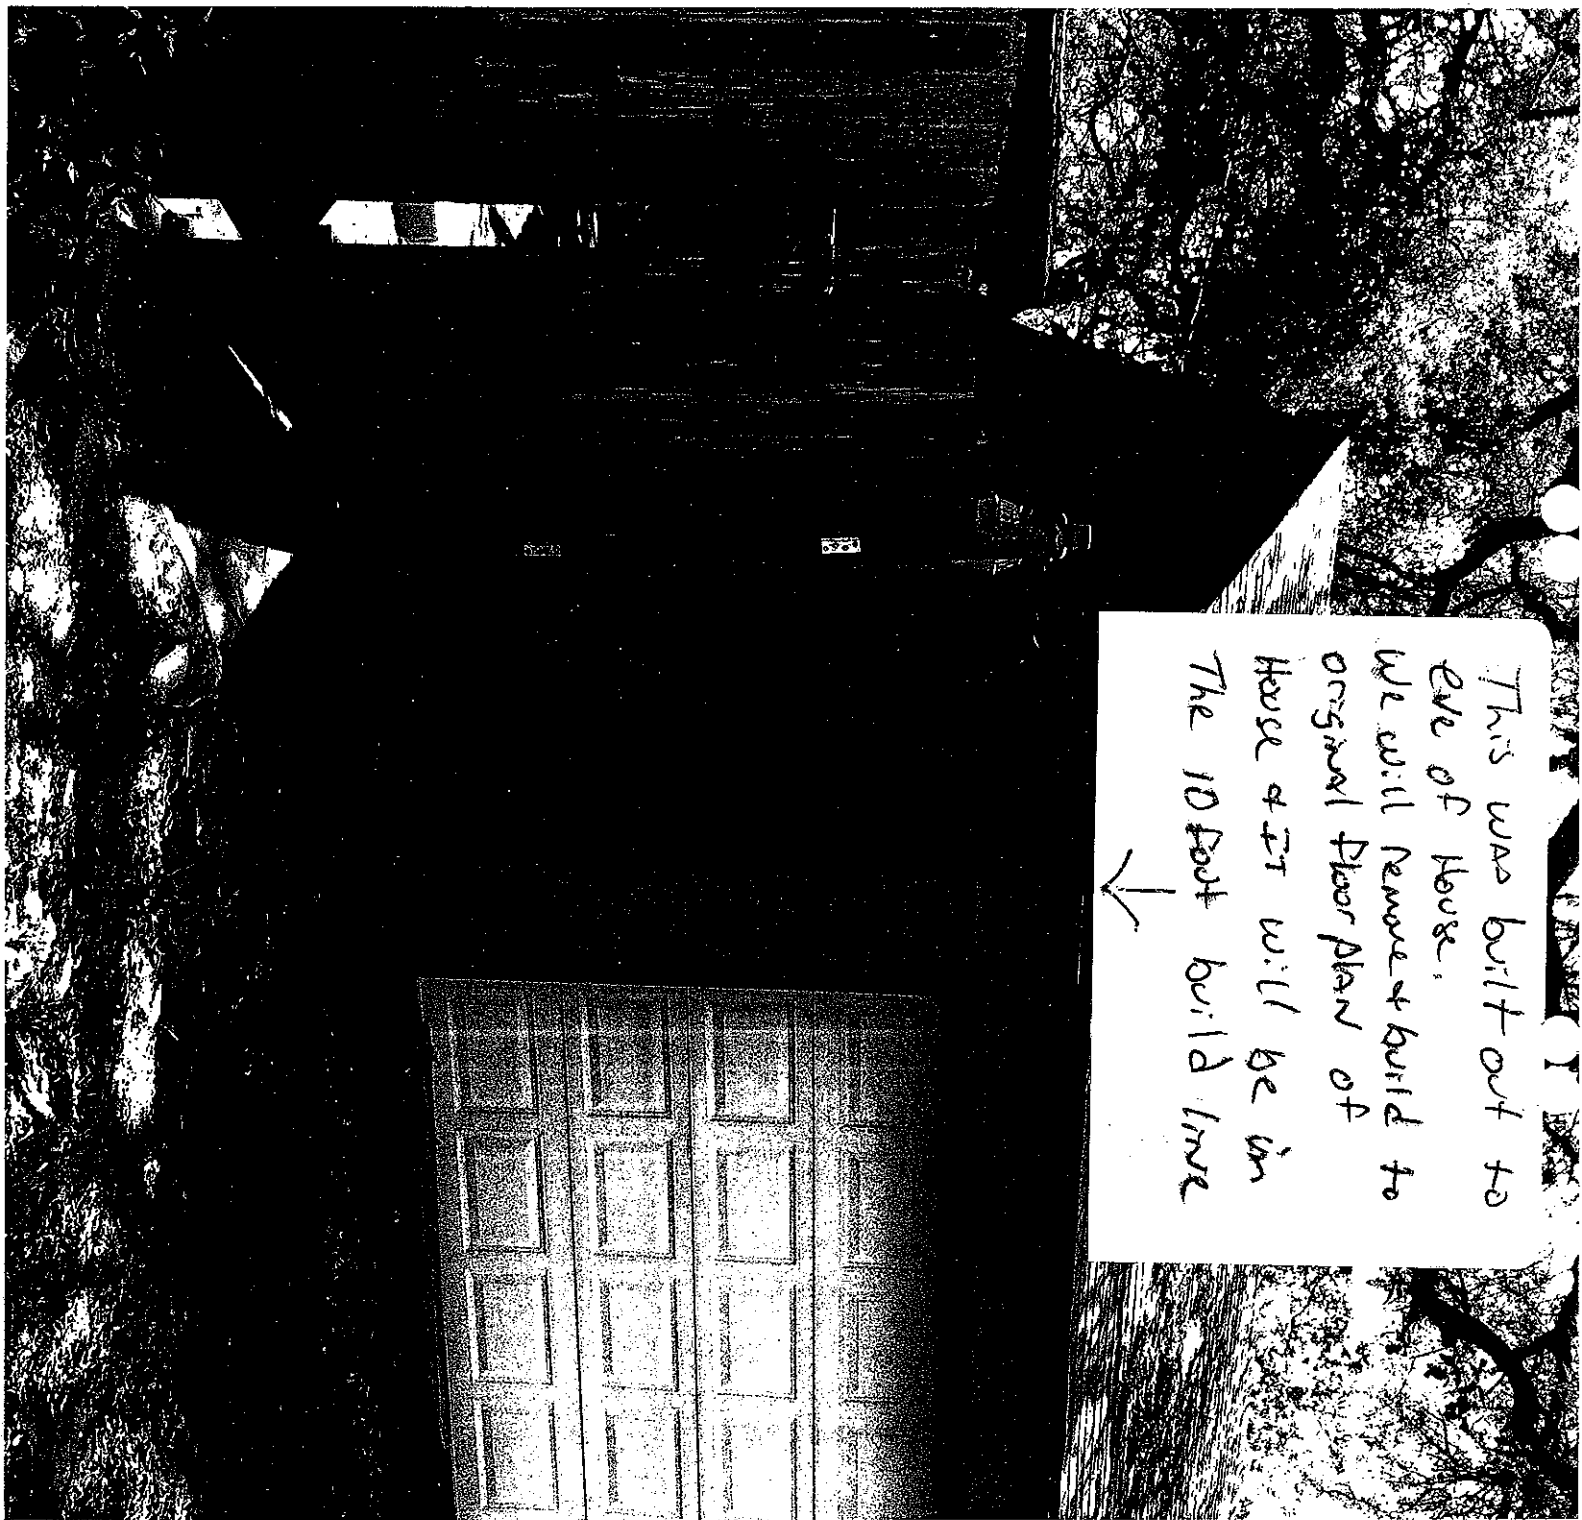 This was built out to
eve of House.
We will remove & build to
original floor plan of
House & IT will be in
The 10 foot build line